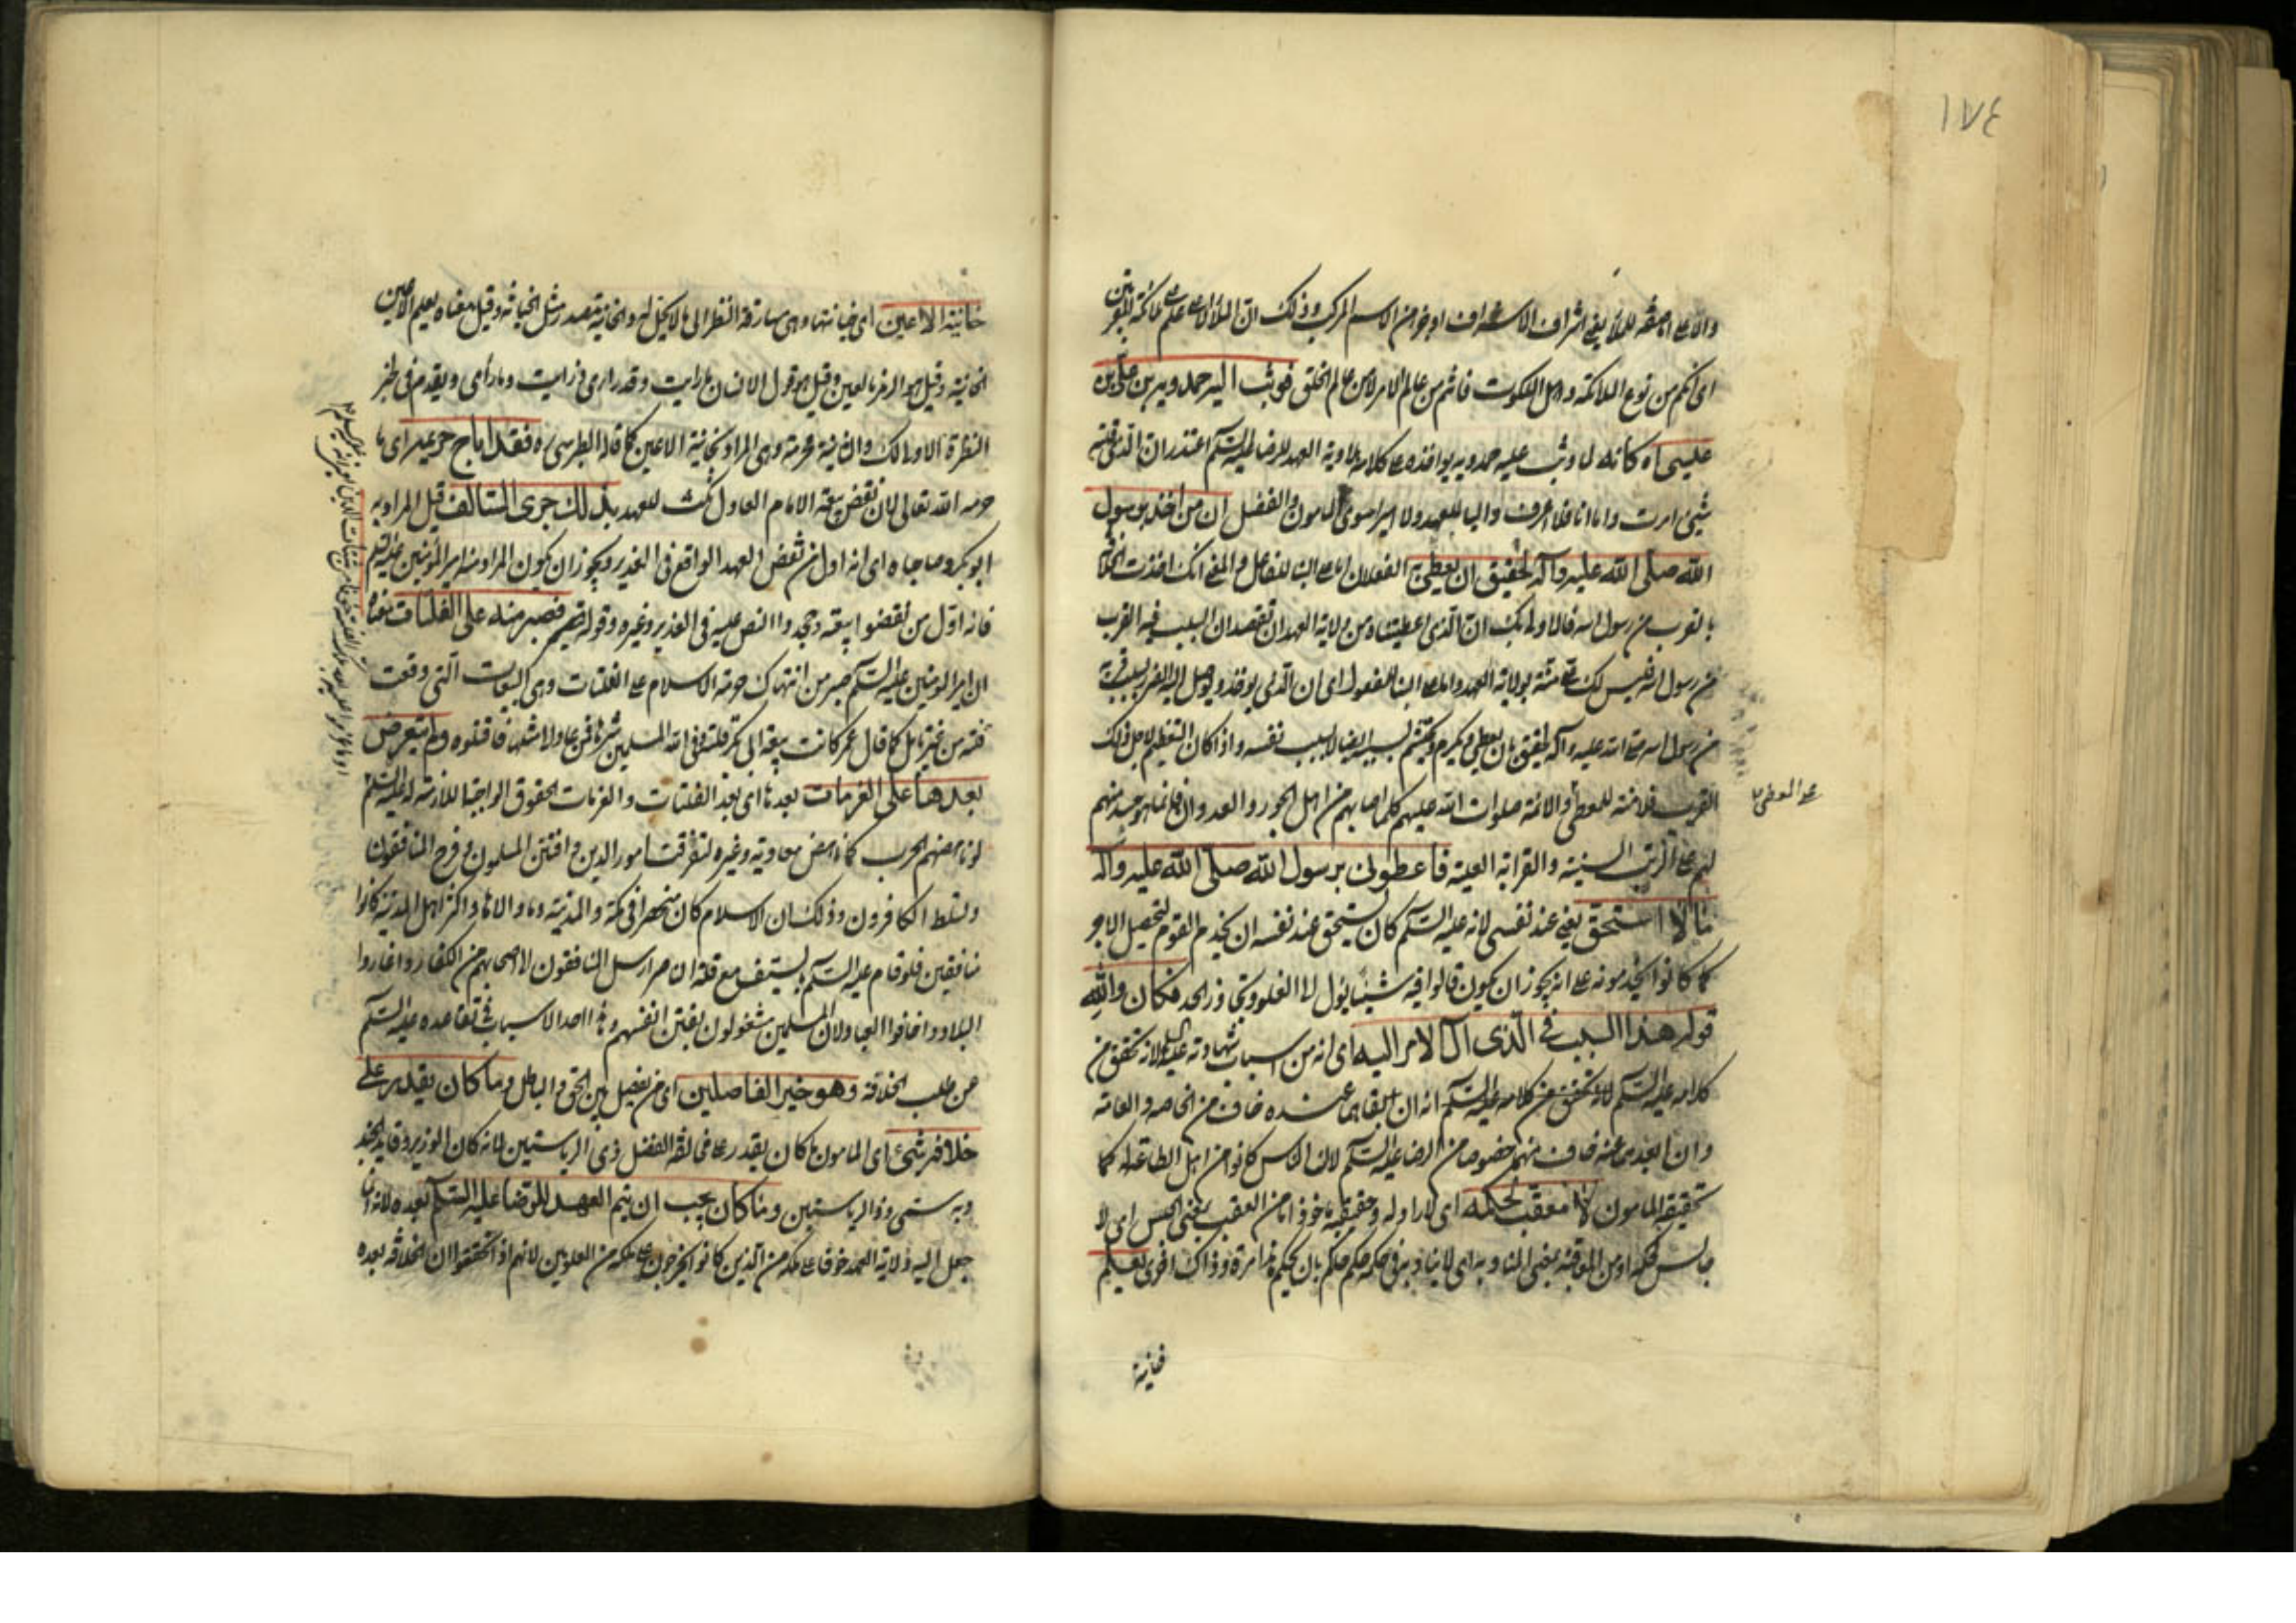 ١٧٤
والاعلى اما صفة للملأ يعني اشراف الاشراف او جزء من الاسم المركب وذلك ان الملأ الاعلى علم ملائكة المقربين
اى انكم من نوع الملائكة واهل الملكوت فانتم من عالم الامر لا من عالم الخلق فوثب اليه حمدويه بن علي بن
عيسى اه كأنه لما وثب عليه حمدويه يؤاخذه على كلامه ولاية العهد للرضا عليه السلم اعتذر ان الذي قلته
شيئ امرت واما انا فلا اعرف واليا للعهد ولا اميرا سوى المأمون والفضل ان من اخذ برسول
الله صلى الله عليه وآله لحقيق ان يعطى به الفعلان اما على البناء للفاعل والمعنى انك اخذت الخلافة
بالقرب من رسول الله فالاولى بك ان الذي اعطيتناه من ولاية العهد ان تقصد ان السبب فيه القرب
من رسول الله فليس لك علي منة بولاية العهد واما على البناء للمفعول اى ان الذي يؤخذ ويوصل اليه الضر بسبب قربه
من رسول الله صلى الله عليه وآله لحقيق بان يعطى ويكرم ويحتشم بسببه ايضا لا بسبب نفسه واذا كان التعظيم لاجل ذلك
القرب فلا منة للمعطي والائمة صلوات الله عليهم كلما اصابهم من اهل الجور والعدوان فانما هو حسد منهم
على المعطى
لهم على الرتب السنية والقرابة العلية فاعطونى برسول الله صلى الله عليه وآله
ما لا استحق يعنى عند نفسى لانه عليه السلم كان يستحق عند نفسه ان يخدم القوم لتحصيل الاجر
كما كانوا يخدمونه على انه يجوز ان يكون قالوا فيه شيئا يؤل الى الغلو وتجاوز الحد فكان والله
قوله هذا السبب فى الذى آل الامر اليه اى انه من اسباب شهادته عليه السلم لانه تحقق من
كلامه عليه السلم لانه تحقق من كلامه عليه السلم انه ان ابقاه عنده خاف من الخاصه والعامه
وان ابعده عنه خاف منهم خصوصا من الرضا عليه السلم لان الناس كانوا من اهل الطاعة له كما
تحقيقه المأمون لا معقب لحكمه اى لا راد له وحقيقته ماخوذ اما من العقب بمعنى الحبس اى لا
حابس لحكمه او من المعاقبة بمعنى المناوبة اى لا يناوبه فى حكمه حكم حاكم بان يحكم هذا مرة وذاك اخرى يعلم
خائنة
خائنة الاعين اى خيانتها وهى مسارقة النظر الى ما لا يحل له والخائنة مصدر مثل الخيانة وقيل معناه يعلم الاعين
الخائنة وقيل هو الرمز بالعين وقيل هو قول الانسان ما رايت وقد راى ورايت وما رأى ويقدم فى خبر
النظرة الاولى لك والثانية محرمة وهى المراد بخائنة الاعين كما قاله الطبرسى ره فقد اباح حريمه اى ما
حرمه الله تعالى لان نقض بيعة الامام العادل نكث للعهد بذلك جرى السالف قيل المراد به
ابو بكر وصاحباه اى انه اول من نقض العهد الواقع فى الغدير ويجوز ان يكون المراد منه امير المؤمنين عليه السلم
فانه اول من نقضوا بيعته وجحدوا النص عليه فى الغدير وغيره وقوله فصبر منه على الفلتات معناه
ان امير المؤمنين عليه السلم صبر من انتهاك حرمة الاسلام على الفلتات وهى البيعات التى وقعت
فلتة من غير تأمل كما قال عمر كانت بيعة ابى بكر فلتة وقى الله المسلمين شرها فمن عاد لامثلها فاقتلوه ولم يتعرض
بعدها على العزمات بعدها اى بعد الفلتات والعزمات الحقوق الواجبة اللازمة له عليه السلم
لو ناهضهم الحرب كما ناهض معاوية وغيره لتفرقت امور الدين وافتتن المسلمون وفرح المنافقون
وتسلط الكافرون وذلك ان الاسلام كان منحصرا فى مكة والمدينة وما والاها واكثر اهل المدينة كانوا
منافقين فلو قام عليه السلم بالسيف مع قلة انصاره ارسل المنافقون الى اصحابهم من الكفار واغاروا
البلاد واخافوا العباد لان المسلمين مشغولون بفتن انفسهم وهذا احد الاسباب فى تقاعده عليه السلم
عن طلب الخلافة وهو خير الفاصلين اى من يفصل بين الحق والباطل وما كان يقدر على
خلافه شئ اى المأمون ما كان يقدر على مخالفة الفضل ذى الرياستين لانه كان الوزير وقايد الجند
وبه سمى ذو الرياستين وما كان يجب ان يتم العهد للرضا عليه السلم بعده لانه انما
جعل اليه ولاية العهد خوفا على ملكه من الذين كانوا يخرجون على ملكه من العلويين لانهم اذا تحققوا ان الخلافة بعده